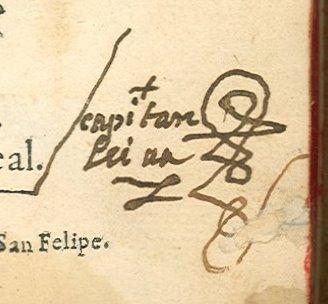 capitan
leiua
eal.
San Felipe.